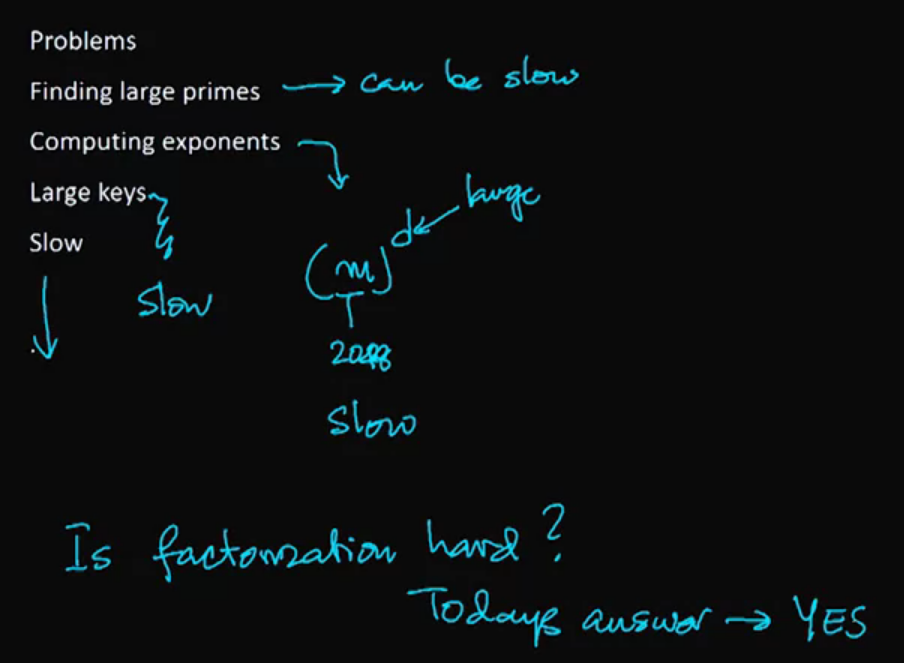 Problems
Finding large primes → can be slow
Computing exponents
Large keys
large
Slow
d
(m)
Slow
2048
Slow
Is factorization hard?
Todays answer → YES